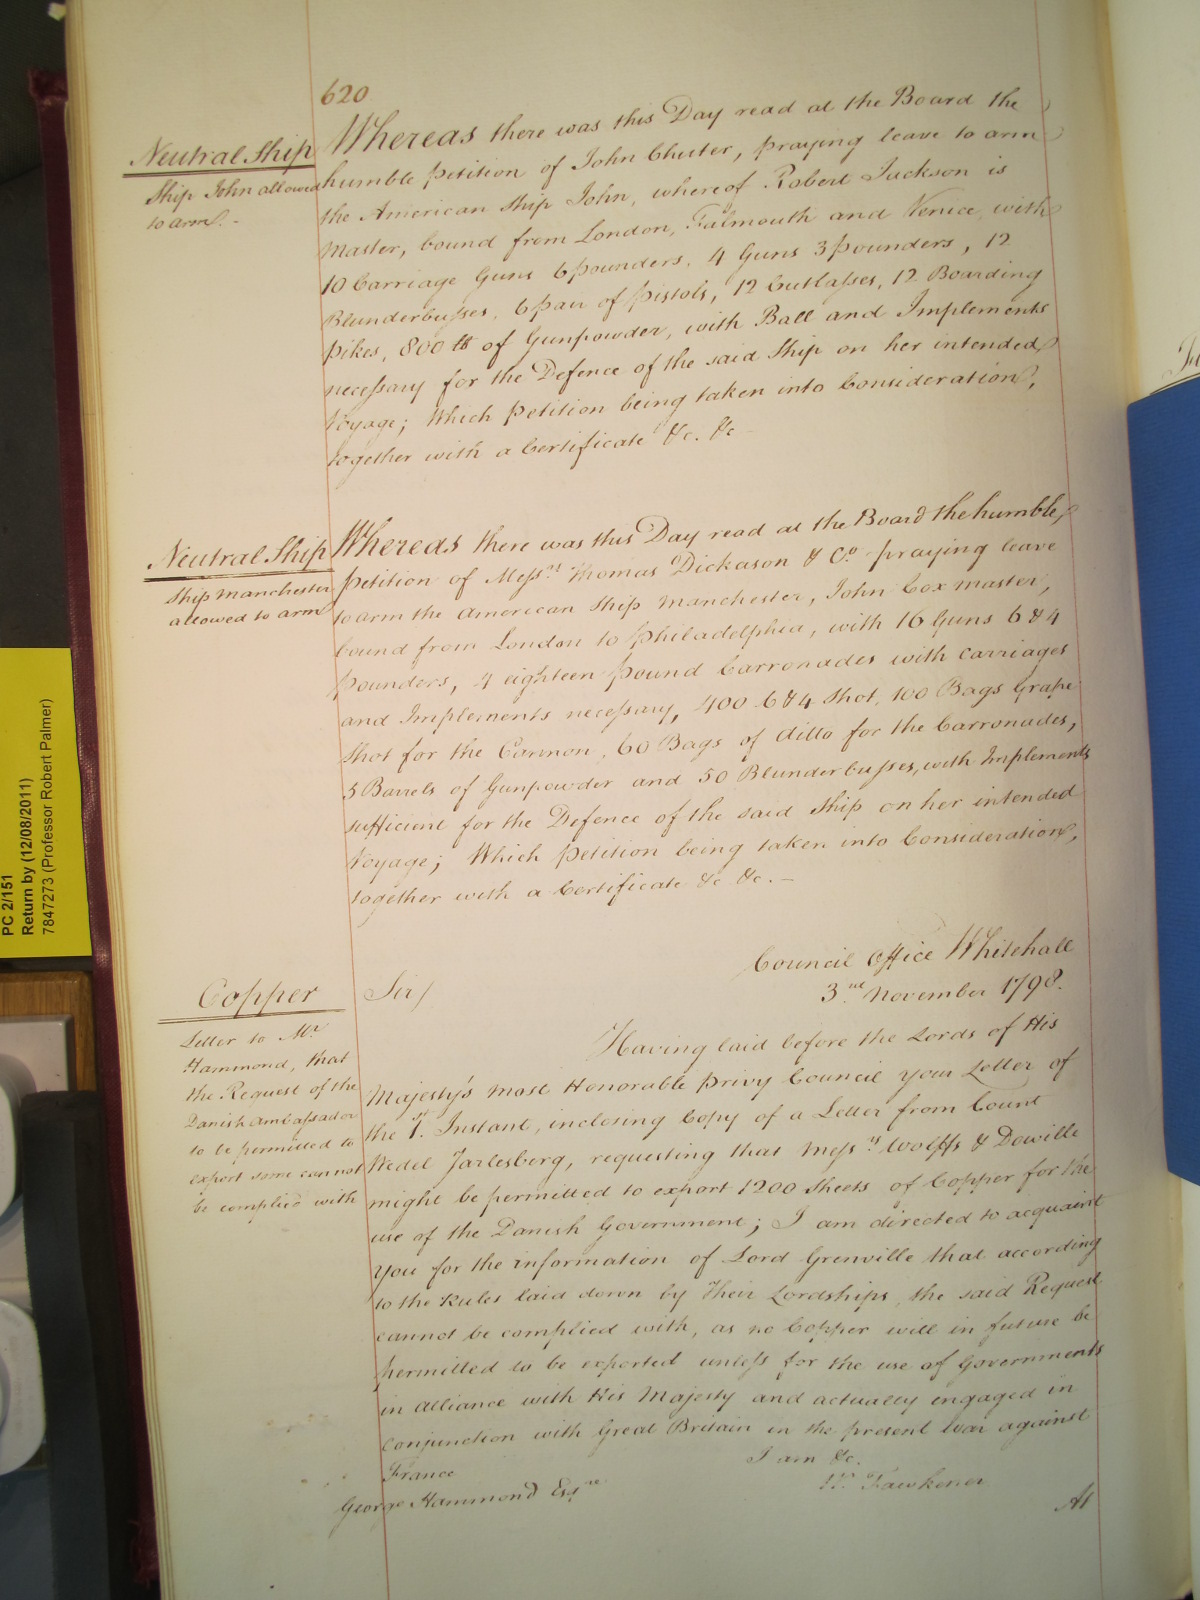 620
Neutral Ship
Ship John allowed
to arm. -
Whereas there was this Day read at the Board the
humble Petition of John Chester, praying leave to arm
the American Ship John, whereof Robert Jackson is
Master, bound from London, Falmouth and Venice with
10 Carriage Guns 6 pounders, 4 Guns 3 pounders, 12
Blunderbusses, 6 pair of Pistols, 12 Cutlasses, 12 Boarding
Pikes, 800 lb of Gunpowder, with Ball and Implements
necessary for the Defence of the said Ship on her intended
Voyage; Which Petition being taken into Consideration,
together with a Certificate &c. &c -
Neutral Ship
Ship Manchester
allowed to arm
Whereas there was this Day read at the Board the humble
Petition of Mess.rs Thomas Dickason & Co. praying leave
to arm the American Ship Manchester, John Cox master,
bound from London to Philadelphia, with 16 Guns 6 & 4
pounders, 4 eighteen pound Carronades with carriages
and Implements necessary, 400 6 & 4 Shot, 100 Bags Grape
Shot for the Cannon, 60 Bags of ditto for the Carronades,
5 Barrels of Gunpowder and 50 Blunderbusses, with Implements
sufficient for the Defence of the said Ship on her intended
Voyage; Which Petition being taken into Consideration,
together with a Certificate &c &c. -
Council Office Whitehall
3.rd November 1798.
Copper
Letter to Mr.
Hammond, that
the Request of the
Danish Ambassador
to be permitted to
export some cannot
be complied with
Sir/
Having laid before the Lords of His
Majesty's most Honorable Privy Council your Letter of
the 1.st Instant, inclosing Copy of a Letter from Count
Wedel Jarlesberg, requesting that Mess.rs Wolffs & Dowille
might be permitted to export 1200 Sheets of Copper for the
use of the Danish Government; I am directed to acquaint
you for the information of Lord Grenville that according
to the Rules laid down by Their Lordships, the said Request
cannot be complied with, as no Copper will in future be
permitted to be exported unless for the use of Governments
in Alliance with His Majesty and actually engaged in
Conjunction with Great Britain in the present War against
France
I am &c.
W. Fawkener
George Hammond Esq.re
At
PC 2/151
Return by (12/08/2011)
7847273 (Professor Robert Palmer)